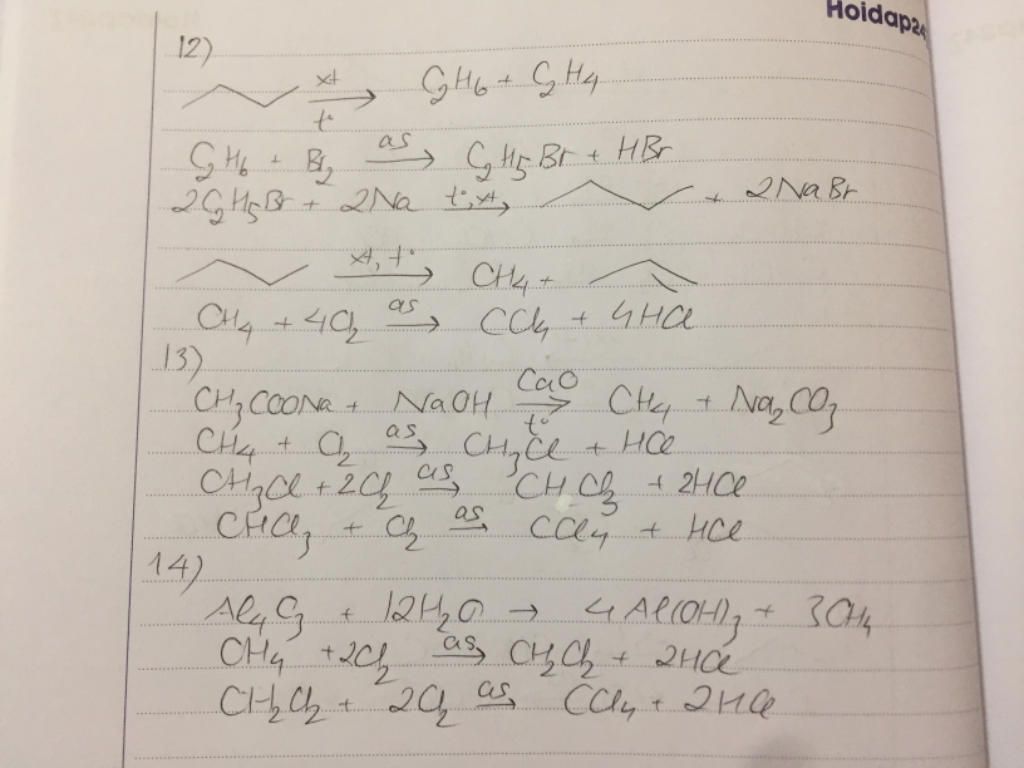 Hoidap24
12)
xt
t°
C2H6 + C2H4
C2H6 + Br2 as→ C2H5Br + HBr
2C2H5Br + 2Na t°, xt→ + 2NaBr
xt, t°→ CH4 +
CH4 + 4Cl2 as→ CCl4 + 4HCl
13)
CH3COONa + NaOH CaO→ t° CH4 + Na2CO3
CH4 + Cl2 as→ CH3Cl + HCl
CH3Cl + 2Cl2 as→ CHCl3 + 2HCl
CHCl3 + Cl2 as→ CCl4 + HCl
14)
Al4C3 + 12H2O → 4Al(OH)3 + 3CH4
CH4 + 2Cl2 as→ CH2Cl2 + 2HCl
CH2Cl2 + 2Cl2 as→ CCl4 + 2HCl